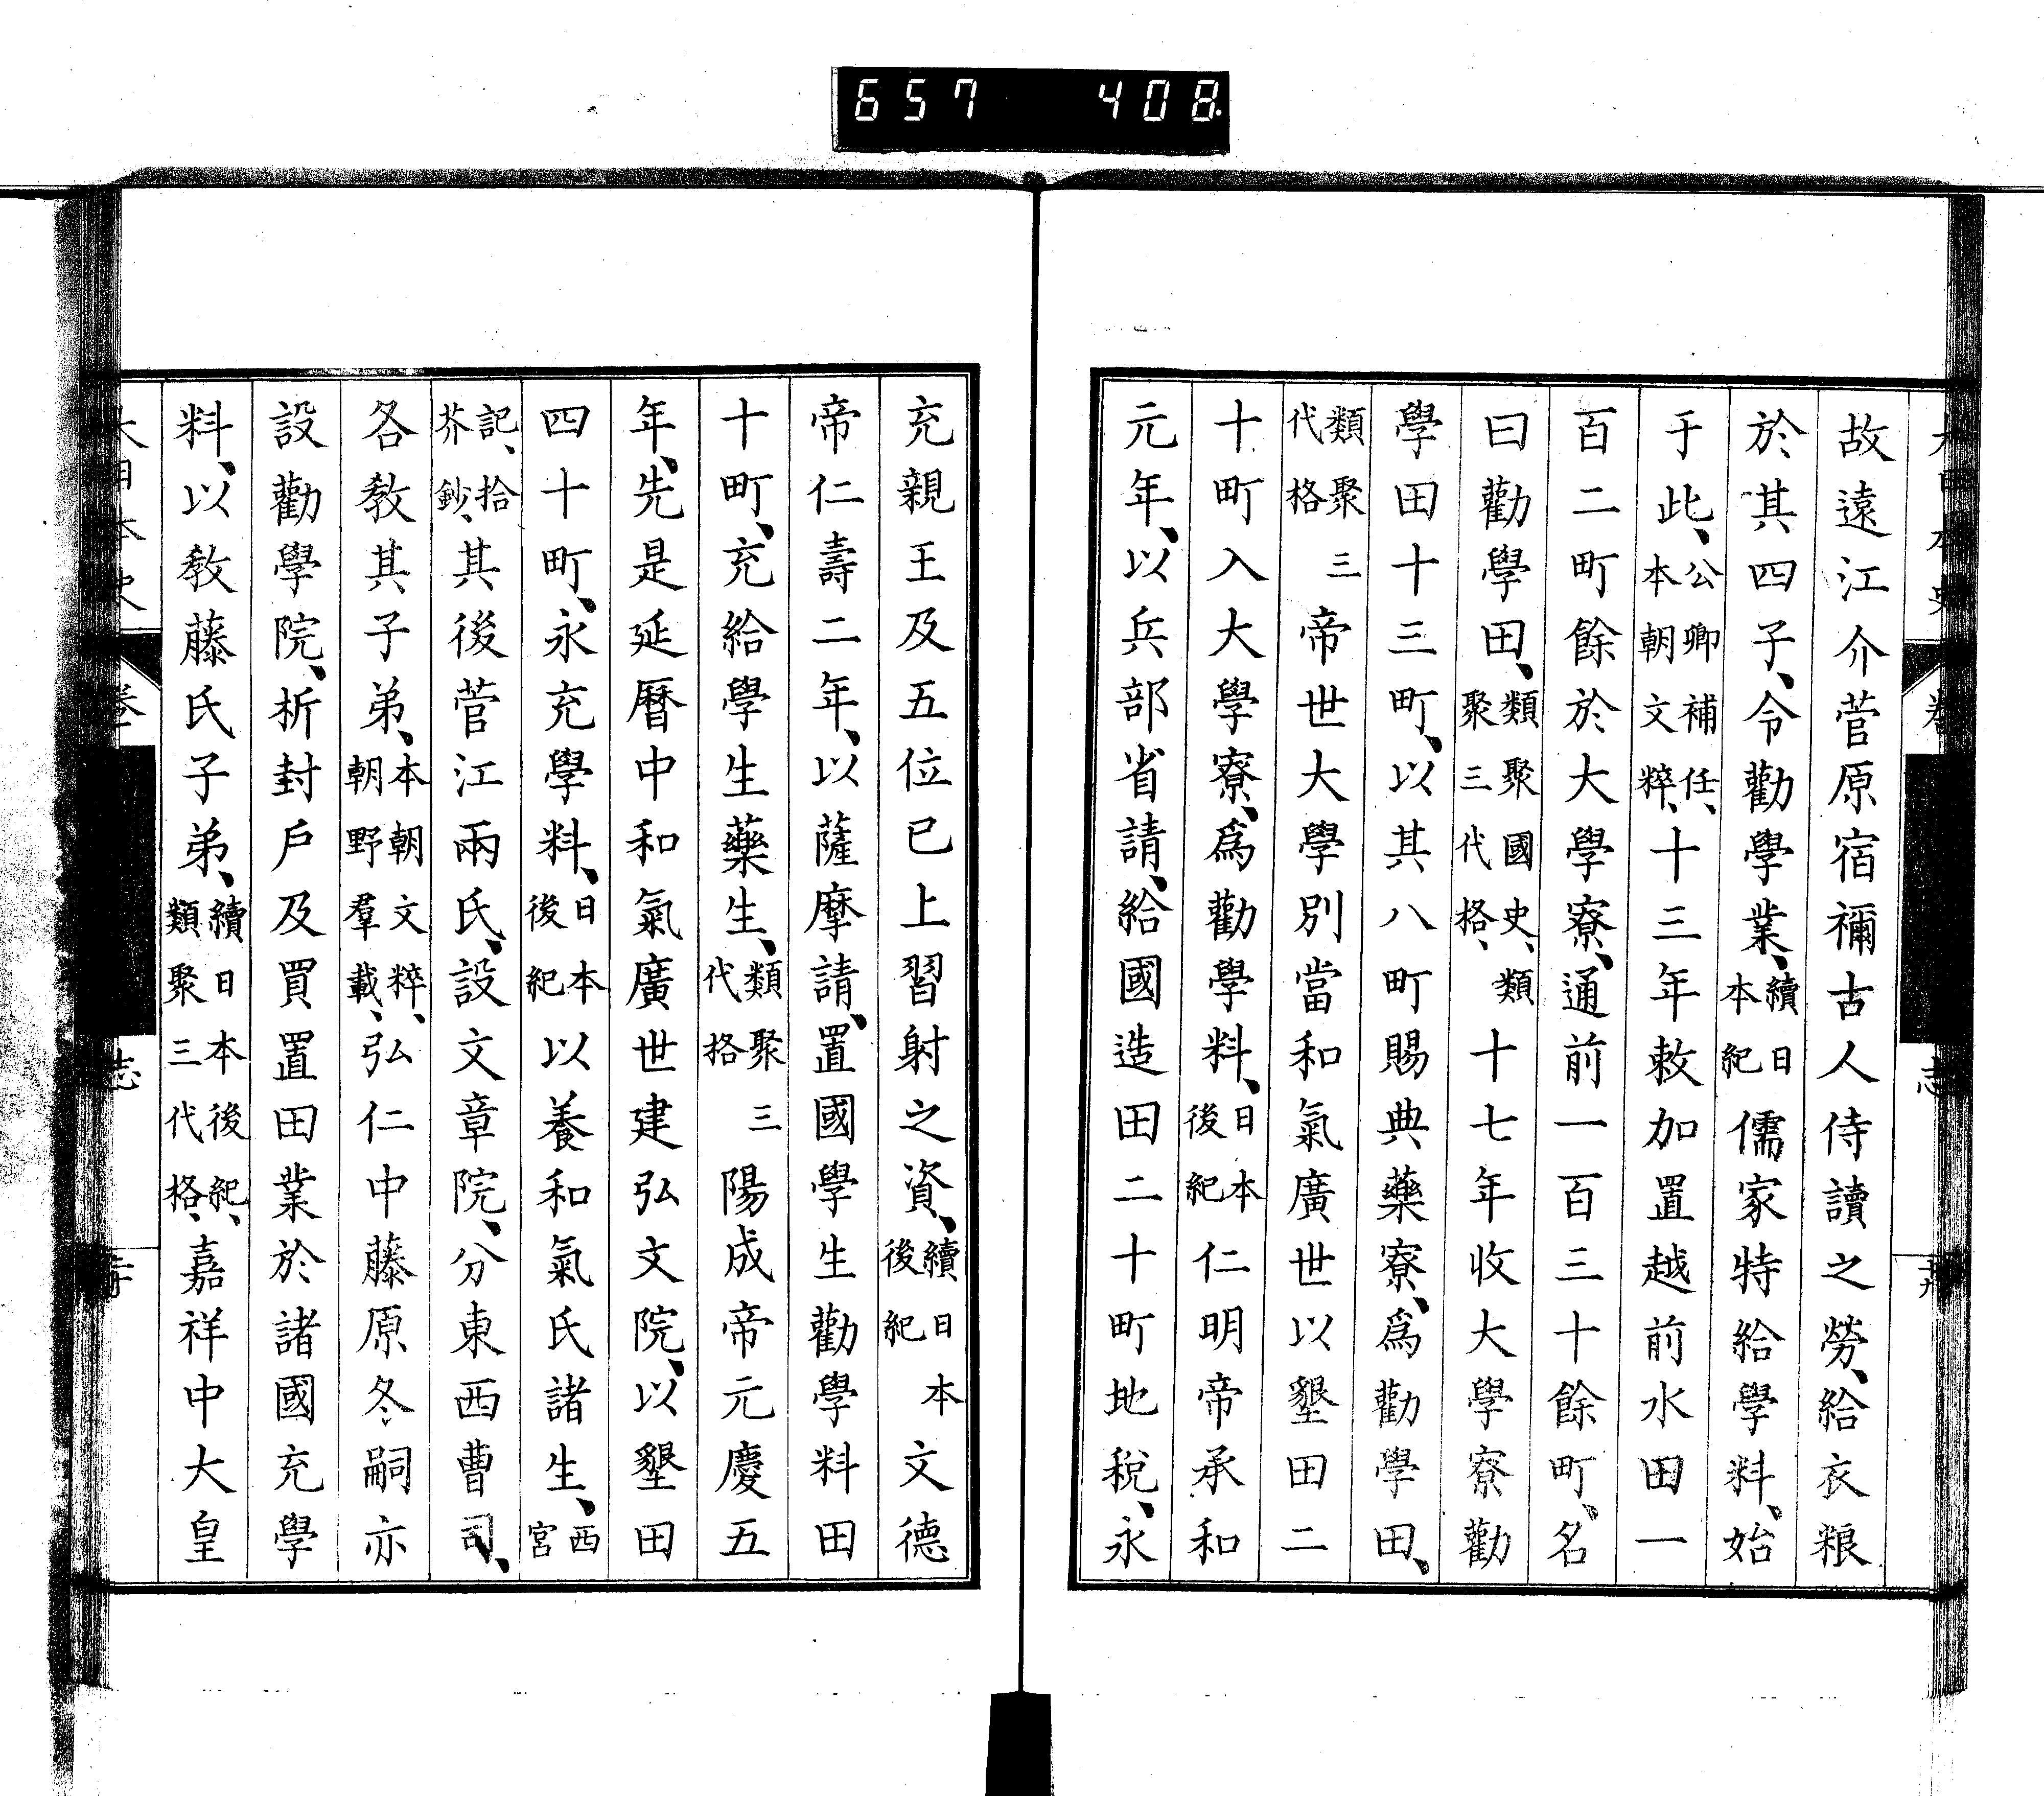 657 408
故遠江介菅原宿禰古人侍讀之勞、給衣粮
於其四子、令勸學業、續日本紀儒家特給學料、始
于此、公卿補任、本朝文粹、十三年敕加置越前水田一
百二町餘於大學寮、通前一百三十餘町、名
曰勸學田、類聚國史、類聚三代格、十七年收大學寮勸
學田十三町、以其八町賜典藥寮、爲勸學田、
類聚三代格帝世大學別當和氣廣世以墾田二
十町入大學寮、爲勸學料、日本後紀仁明帝承和
元年、以兵部省請、給國造田二十町地稅、永
充親王及五位已上習射之資、續日本後紀文德
帝仁壽二年、以薩摩請、置國學生勸學料田
十町、充給學生藥生、類聚三代格陽成帝元慶五
年、先是延曆中和氣廣世建弘文院、以墾田
四十町、永充學料、日本後紀以養和氣氏諸生、西宮
記、拾芥鈔、其後菅江兩氏、設文章院、分東西曹司、
各教其子弟、本朝文粹、朝野羣載、弘仁中藤原冬嗣亦
設勸學院、析封戶及買置田業於諸國充學
料、以教藤氏子弟、續日本後紀、類聚三代格、嘉祥中大皇